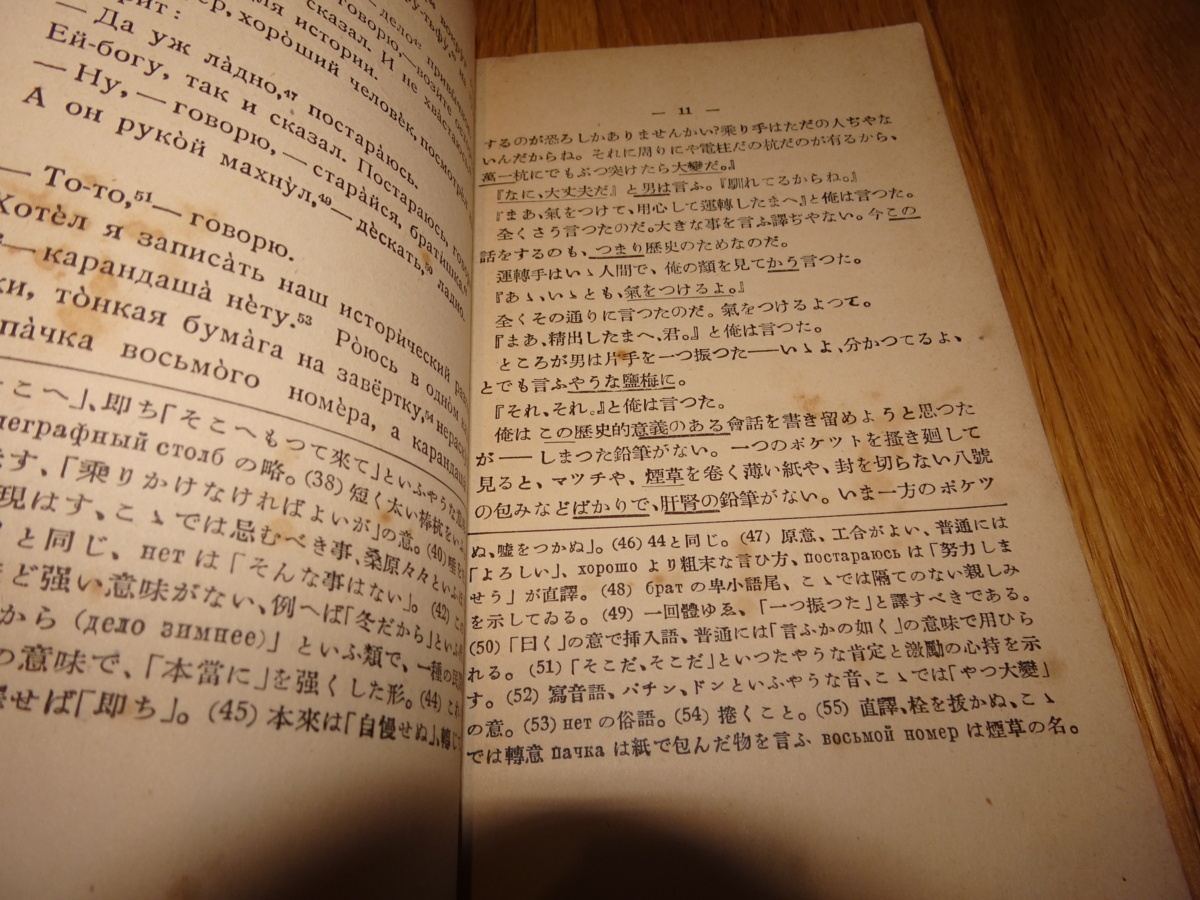 хоро̀ший человѐк, посмотрѝ
сказал. И не хва̀стаюсь
для истории.
— Да уж ла̀дно,⁴⁷ постара̀юсь.
Ей-богу, так и сказал. Постараюсь, гово
— Ну, — говорю, — стара̀йся, бра̀тишка,⁴⁸
А он рукой махну̀л,⁴⁹ — дѐскать,⁵⁰ ладно.
— То-то,⁵¹ — говорю.
Хотѐл я записа̀ть наш историческ̀ий раз
— карандаша̀ нѐту.⁵³ Ро̀юсь в одно̀м ка
ки, то̀нкая бума̀га на завёртку,⁵⁴ нерас
па̀чка восьмо̀го но̀мера, а карандаша
そこへ」、即ち「そこへもつて來て」といふやうな意
леграфный столб の略。(38) 短く太い棒杭をい
ます、「乘りかけなければよいが」の意。(40) 唾を
現はす、こゝでは忌むべき事、桑原々々といふ
と同じ、нет は「そんな事はない」。(42) この
ど强い意味がない、例へば「冬だから」といふ
から (дело зимнее)」といふ類で、一種の
の意味で、「本當に」を强くした形。(44) これ
せば「即ち」。(45) 本來は「自慢せぬ」、轉じて
— 11 —
するのが恐ろしかありませんかい?乘り手はただの人ぢやな
いんだからね。それに周りにや電柱だの杭だのが有るから、
萬一杭にでもぶつ突けたら大變だ。』
『なに、大丈夫だ』と男は言ふ。『馴れてるからね。』
『まあ、氣をつけて、用心して運轉したまへ』と俺は言つた。
全くさう言つたのだ。大きな事を言ふ譯ぢやない。今この
話をするのも、つまり歷史のためなのだ。
運轉手はいゝ人間で、俺の顏を見てかう言つた。
『あゝ、いゝとも、氣をつけるよ。』
全くその通りに言つたのだ。氣をつけるよつて。
『まあ、精出したまへ、君。』と俺は言つた。
ところが男は片手を一つ振つた——いゝよ、分かつてるよ、
とでも言ふやうな鹽梅に。
『それ、それ。』と俺は言つた。
俺はこの歷史的意義のある會話を書き留めようと思つた
が——しまつた鉛筆がない。一つのポケツトを搔き廻して
見ると、マツチや、煙草を卷く薄い紙や、封を切らない八號
の包みなどばかりで、肝腎の鉛筆がない。いま一方のポケツ
ぬ、嘘をつかぬ」。(46) 44と同じ。(47) 原意、工合がよい、普通には
「よろしい」、хорошо より粗末な言ひ方、постараюсь は「努力しま
せう」が直譯。(48) брат の卑小語尾、こゝでは隔てのない親しみ
を示してゐる。(49) 一回體ゆゑ、「一つ振つた」と譯すべきである。
(50)「曰く」の意で挿入語、普通には「言ふかの如く」の意味で用ひら
れる。(51)「そこだ、そこだ」といつたやうな肯定と激勵の心持を示
す。(52) 寫音語、パチン、ドンといふやうな音、こゝでは「やつ大變」
の意。(53) нет の俗語。(54) 捲くこと。(55) 直譯、栓を拔かぬ、こゝ
では轉意 пачка は紙で包んだ物を言ふ восьмой номер は煙草の名。